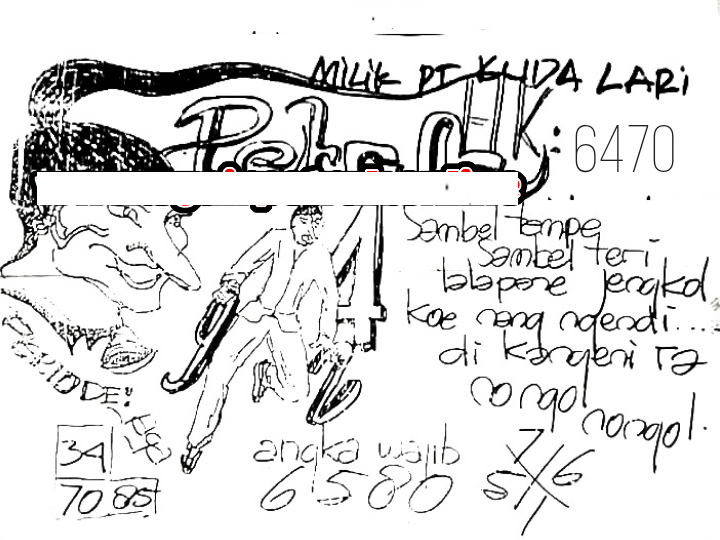 MILIK PT KUDA LARI
HK: 6470
4
Sambel tempe
Sambel teri
lalapane jengkol
koe nang ngendi....
di kangeni ra
nongol nongol.
EPISODE:
34
70 85
angka wajib
6580
7
5 X 6
1